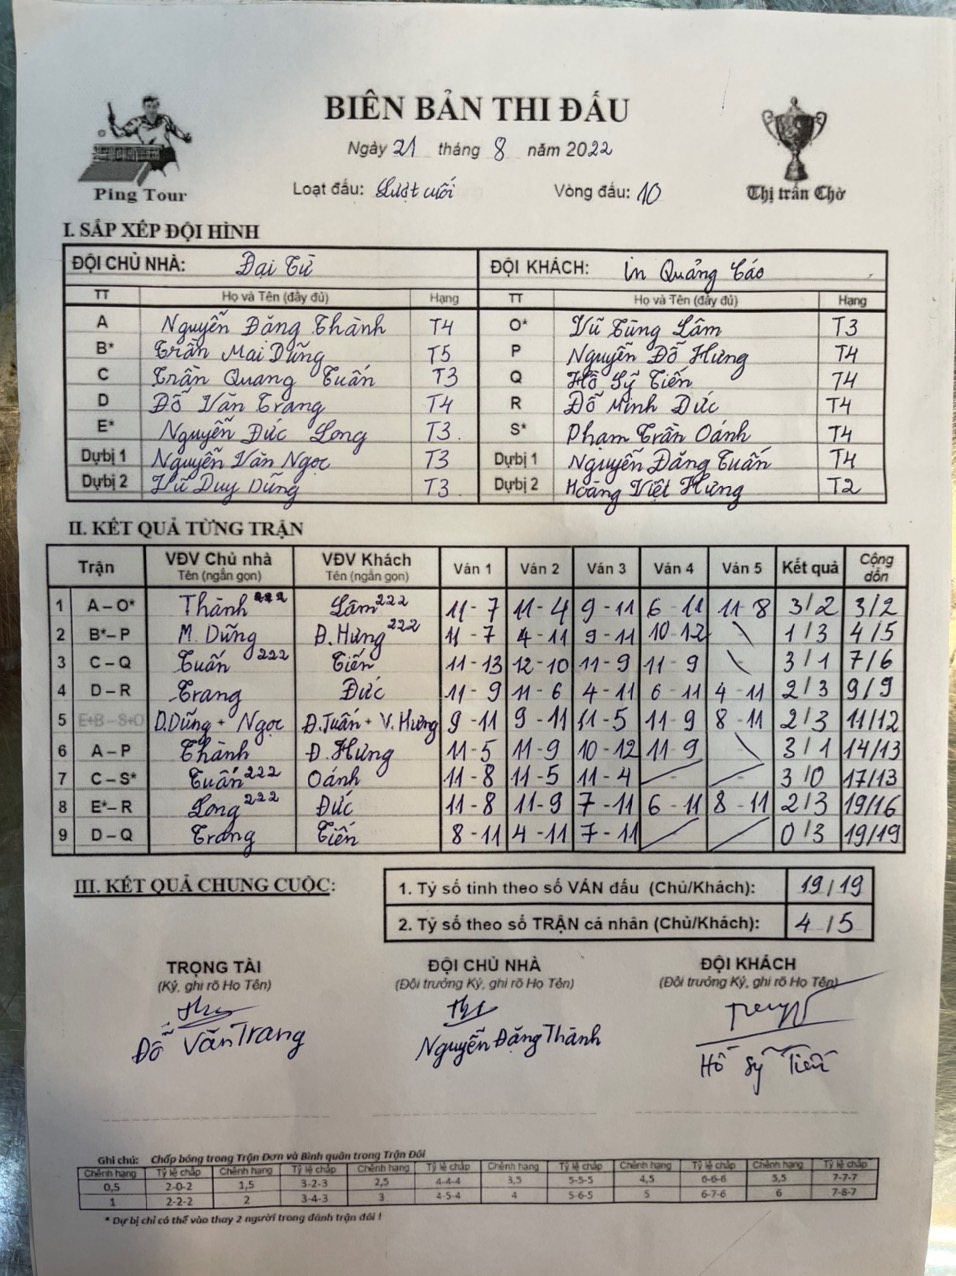 BIÊN BẢN THI ĐẤU
Ngày 21 tháng 8 năm 2022
Ping Tour
Loạt đấu: Lượt cuối Vòng đấu: 10
Thị trấn Chờ
I. SẮP XẾP ĐỘI HÌNH
ĐỘI CHỦ NHÀ: Đại Từ ĐỘI KHÁCH: in Quảng Cáo
TT Họ và Tên (đầy đủ) Hạng TT Họ và Tên (đầy đủ) Hạng
A Nguyễn Đăng Thành T4 O* Vũ Tùng Lâm T3
B* Trần Mai Dũng T5 P Nguyễn Đỗ Hưng T4
C Trần Quang Tuấn T3 Q Hồ Sỹ Tiến T4
D Đỗ Văn Trang T4 R Đỗ Minh Đức T4
E* Nguyễn Đức Long T3 S* Phạm Trần Oánh T4
Dự bị 1 Nguyễn Văn Ngọc T3 Dự bị 1 Nguyễn Đăng Tuấn T4
Dự bị 2 Vũ Duy Dũng T3 Dự bị 2 Hoàng Việt Hưng T2
II. KẾT QUẢ TỪNG TRẬN
Trận VĐV Chủ nhà Tên (ngắn gọn) VĐV Khách Tên (ngắn gọn) Ván 1 Ván 2 Ván 3 Ván 4 Ván 5 Kết quả Cộng dồn
1 A – O* Thành 222 Lâm 222 11 - 7 11 - 4 9 - 11 6 - 11 11 - 8 3 / 2 3/2
2 B* – P M. Dũng Đ. Hưng 222 11 - 7 4 - 11 9 - 11 10 - 12 \ 1 / 3 4/5
3 C – Q Tuấn 222 Tiến 11 - 13 12 - 10 11 - 9 11 - 9 \ 3 / 1 7/6
4 D – R Trang Đức 11 - 9 11 - 6 4 - 11 6 - 11 4 - 11 2 / 3 9/9
5 E+B – S+O D.Dũng + Ngọc Đ.Tuấn + V.Hưng 9 - 11 9 - 11 11 - 5 11 - 9 8 - 11 2 / 3 11/12
6 A – P Thành Đ. Hưng 11 - 5 11 - 9 10 - 12 11 - 9 \ 3 / 1 14/13
7 C – S* Tuấn 222 Oánh 11 - 8 11 - 5 11 - 4 - - 3 / 0 17/13
8 E* – R Long 222 Đức 11 - 8 11 - 9 7 - 11 6 - 11 8 - 11 2 / 3 19/16
9 D – Q Trang Tiến 8 - 11 4 - 11 7 - 11 / / 0 / 3 19/19
III. KẾT QUẢ CHUNG CUỘC:
1. Tỷ số tính theo số VÁN đấu (Chủ/Khách): 19 / 19
2. Tỷ số theo số TRẬN cá nhân (Chủ/Khách): 4 / 5
TRỌNG TÀI ĐỘI CHỦ NHÀ ĐỘI KHÁCH
(Ký, ghi rõ Họ Tên) (Đội trưởng Ký, ghi rõ Họ Tên) (Đội trưởng Ký, ghi rõ Họ Tên)
Đỗ Văn Trang Nguyễn Đăng Thành Hồ Sỹ Tiến
Ghi chú: Chấp bóng trong Trận Đơn và Bình quân trong Trận Đôi
Chênh hạng Tỷ lệ chấp Chênh hạng Tỷ lệ chấp Chênh hạng Tỷ lệ chấp Chênh hạng Tỷ lệ chấp Chênh hạng Tỷ lệ chấp Chênh hạng Tỷ lệ chấp
0,5 2-0-2 1,5 3-2-3 2,5 4-4-4 3,5 5-5-5 4,5 6-6-6 5,5 7-7-7
1 2-2-2 2 3-4-3 3 4-5-4 4 5-6-5 5 6-7-6 6 7-8-7
* Dự bị chỉ có thể vào thay 2 người trong đánh trận đôi !